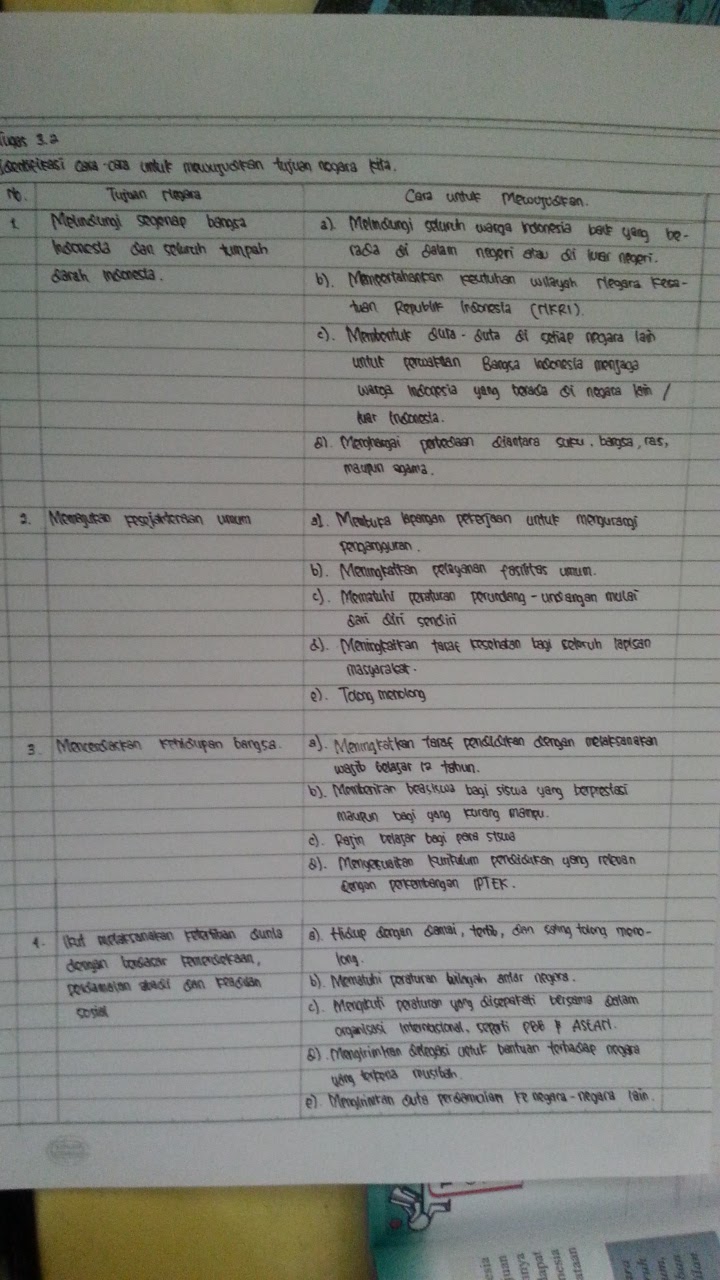 Tugas 3.2
Identifikasi cara-cara untuk mewujudkan tujuan negara kita.
No. Tujuan Negara Cara untuk Mewujudkan.
1. Melindungi segenap bangsa
Indonesia dan seluruh tumpah
darah Indonesia.
a). Melindungi seluruh warga Indonesia baik yang be-
rada di dalam negeri atau di luar negeri.
b). Mempertahankan keutuhan wilayah Negara Kesa-
tuan Republik Indonesia (NKRI).
c). Membentuk duta-duta di setiap negara lain
untuk perwakilan Bangsa Indonesia menjaga
warga Indonesia yang berada di negara lain /
luar Indonesia.
d). Menghargai perbedaan diantara suku, bangsa, ras,
maupun agama.
2. Memajukan kesejahteraan umum
a). Membuka lapangan pekerjaan untuk mengurangi
pengangguran.
b). Meningkatkan pelayanan fasilitas umum.
c). Mematuhi peraturan perundang-undangan mulai
dari diri sendiri
d). Meningkatkan taraf kesehatan bagi seluruh lapisan
masyarakat.
e). Tolong menolong
3. Mencerdaskan kehidupan bangsa.
a). Meningkatkan taraf pendidikan dengan melaksanakan
wajib belajar 12 tahun.
b). Memberikan beasiswa bagi siswa yang berprestasi
maupun bagi yang kurang mampu.
c). Rajin belajar bagi para siswa
d). Menyesuaikan kurikulum pendidikan yang relevan
dengan perkembangan IPTEK.
4. Ikut melaksanakan ketertiban dunia
dengan berdasar kemerdekaan,
perdamaian abadi dan keadilan
sosial
a). Hidup dengan damai, tertib, dan saling tolong meno-
long.
b). Mematuhi peraturan bilayah antar negara.
c). Mengikuti peraturan yang disepakati bersama dalam
organisasi Internasional, seperti PBB & ASEAN.
d). Mengirimkan delegasi untuk bantuan terhadap negara
yang terkena musibah.
e). Mengirimkan duta perdamaian ke negara-negara lain.